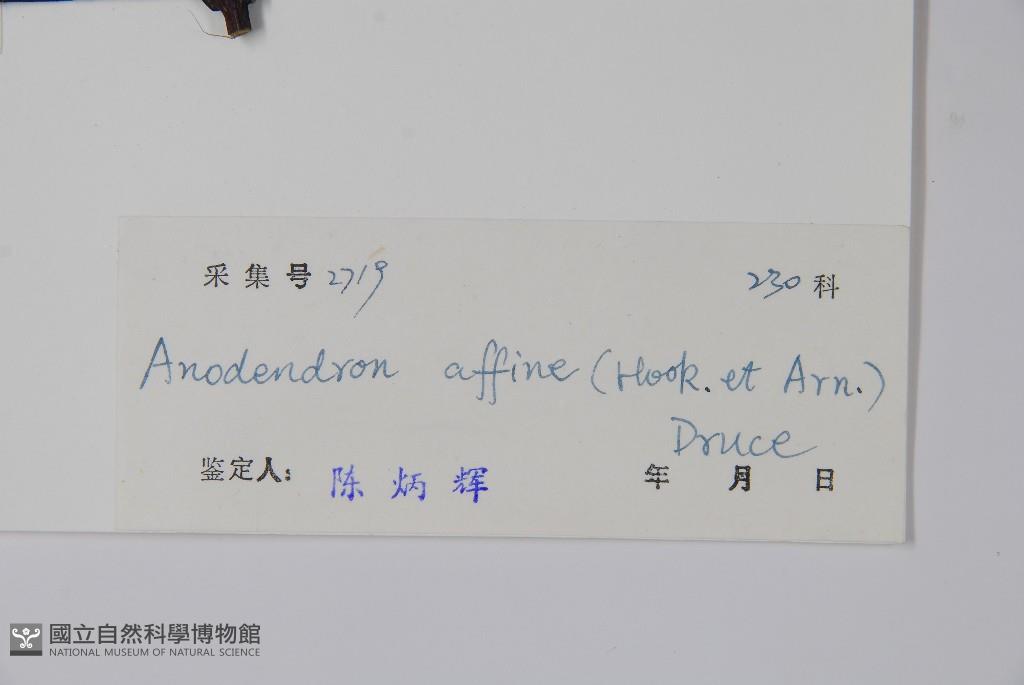 采集号 2719 230 科
Anodendron affine (Hook. et Arn.)
Druce
鉴定人: 陈炳辉 年 月 日
國立自然科學博物館
NATIONAL MUSEUM OF NATURAL SCIENCE